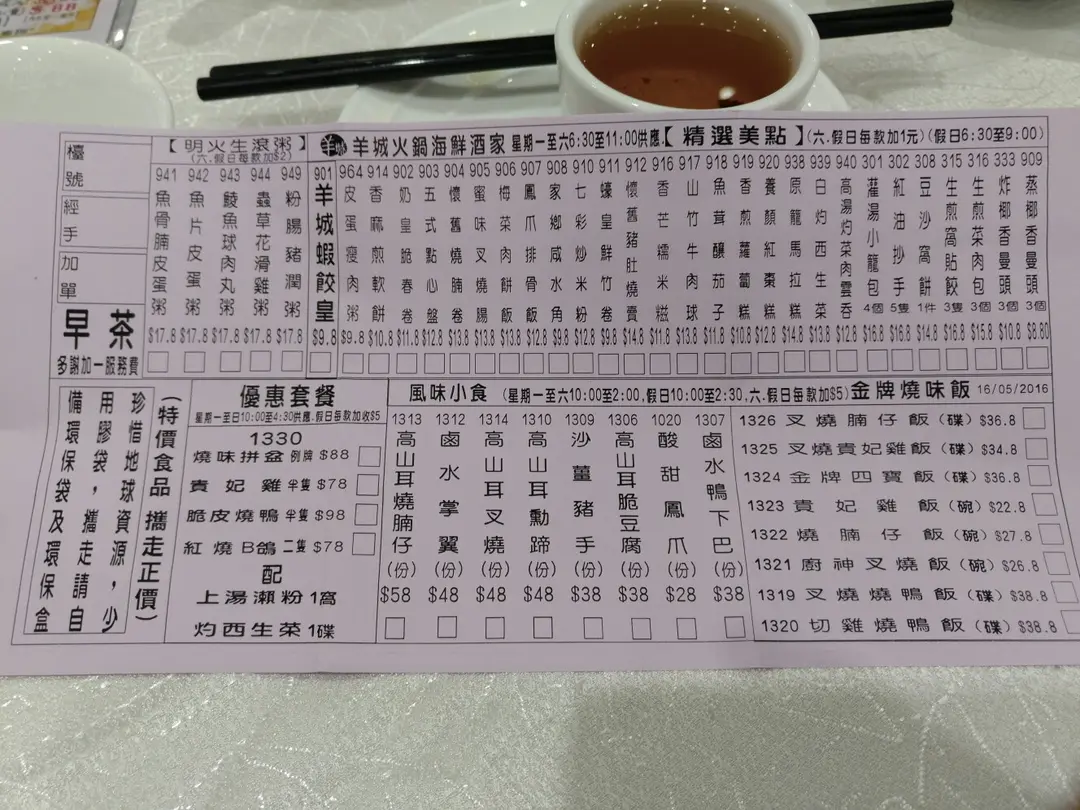 $88
檯號
經手
加單
早茶
多謝加一服務費
【明火生滾粥】
(六.假日每款加$2)
941 魚骨腩皮蛋粥 $17.8
942 魚片皮蛋粥 $17.8
943 鯪魚球肉丸粥 $17.8
944 蟲草花滑雞粥 $17.8
949 粉腸豬潤粥 $17.8
羊城火鍋海鮮酒家 星期一至六6:30至11:00供應【精選美點】(六.假日每款加1元)(假日6:30至9:00)
901 羊城蝦餃皇 $9.8
964 皮蛋瘦肉粥 $9.8
914 香麻煎軟餅 $10.8
902 奶皇跪春卷 $11.8
903 五式點心盤 $12.8
904 懷舊燒腩卷 $13.8
905 蜜味叉燒腸 $13.8
906 梅菜肉餅飯 $13.8
907 鳳爪排骨飯 $13.8
908 家鄉咸水角 $10.8
910 七彩炒米粉 $12.8
911 蠔皇鮮竹卷 $9.8
912 懷舊豬肚燒賣 $14.8
916 香芒糯米糍 $11.8
917 山竹牛肉球 $13.8
918 魚茸釀茄子 $11.8
919 香煎蘿蔔糕 $10.8
930 養顏紅棗糕 $12.8
938 原籠馬拉糕 $14.8
939 白灼西生菜 $13.8
940 高湯灼菜肉雲吞 $12.8
301 灌湯小籠包 4個 $16.8
302 紅油抄手 5隻 $16.8
308 豆沙窩餅 1件 $14.8
315 生煎窩貼 3隻 $10.8
316 生煎菜肉包 3個 $15.8
333 炸椰香曼頭 3個 $10.8
909 蒸椰香曼頭 3個 $8.80
珍惜地球資源，少
用膠袋，攜走請自
備環保袋及環保盒
(特價食品 攜走正價)
優惠套餐
星期一至日10:00至4:30供應.假日每款加收$5
1330
燒味拼盆 例牌 $88
貴妃雞 半隻 $78
脆皮燒鴨 半隻 $98
紅燒B鴿 二隻 $78
配
上湯瀨粉1窩
灼西生菜1碟
風味小食 (星期一至六10:00至2:00,假日10:00至2:30,六.假日每款加$5)金牌燒味飯 16/05/2016
1313 高山耳燒腩仔 (份) $58
1312 鹵水掌翼 (份) $48
1314 高山耳叉燒 (份) $48
1310 高山耳勳蹄 (份) $48
1309 沙薑豬手 (份) $38
1306 高山耳脆豆腐 (份) $38
1020 酸甜鳳爪 (份) $28
1307 鹵水鴨下巴 (份) $38
1326 叉燒腩仔飯(碟)$36.8
1325 叉燒貴妃雞飯(碟)$34.8
1324 金牌四寶飯(碟)$36.8
1323 貴妃雞飯(碗)$22.8
1322 燒腩仔飯(碗)$27.8
1321 廚神叉燒飯(碗)$26.8
1319 叉燒燒鴨飯(碟)$38.8
1320 切雞燒鴨飯(碟)$38.8